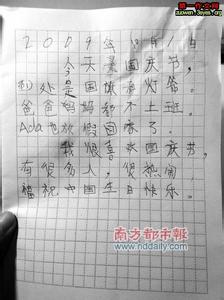 第一作文网
zuowen.3eyes.org
2009年10月1日
今天是国庆节,
到处是国旗和灯笼。
爸爸妈妈都不上班。
Ada也放假回家了。
我很喜欢国庆节,
有很多人,很热闹
祝中国生日快乐。
南方都市報
www.nddaily.com